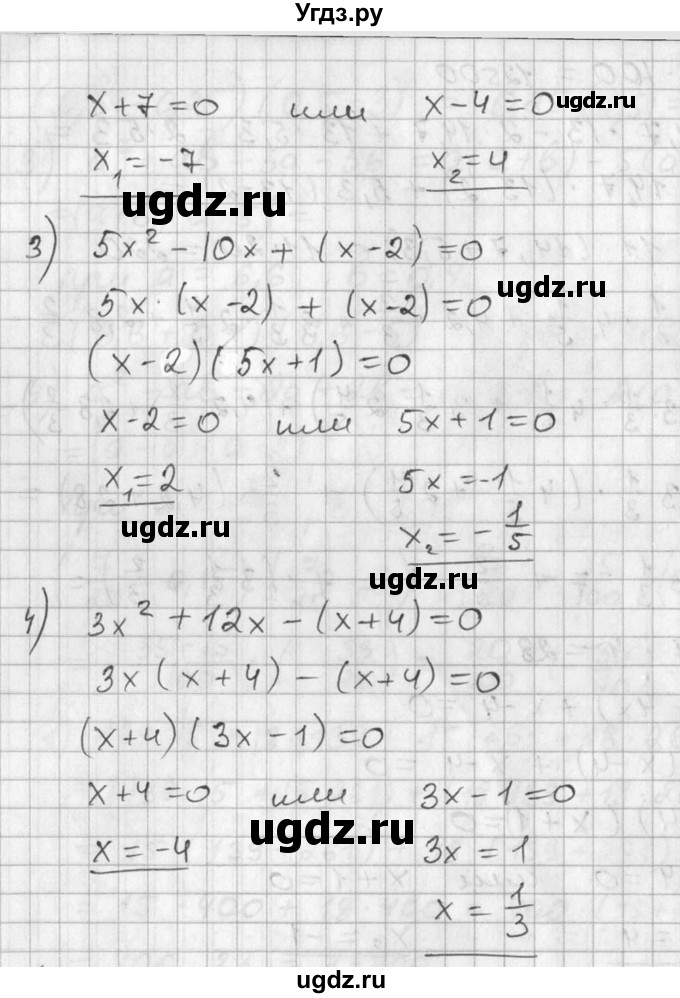 Угдз.ру
x + 7 = 0 или x - 4 = 0
ugdz.ru
x₁ = -7 x₂ = 4
ugdz.ru
3) 5x² - 10x + (x - 2) = 0
ugdz.ru
5x · (x - 2) + (x - 2) = 0
(x - 2)(5x + 1) = 0
x - 2 = 0 или 5x + 1 = 0
x₁ = 2 5x = -1
ugdz.ru
x₂ = - 1/5
ugdz.ru
4) 3x² + 12x - (x + 4) = 0
3x (x + 4) - (x + 4) = 0
(x + 4)(3x - 1) = 0
x + 4 = 0 или 3x - 1 = 0
ugdz.ru
x = -4 3x = 1
x = 1/3
ugdz.ru